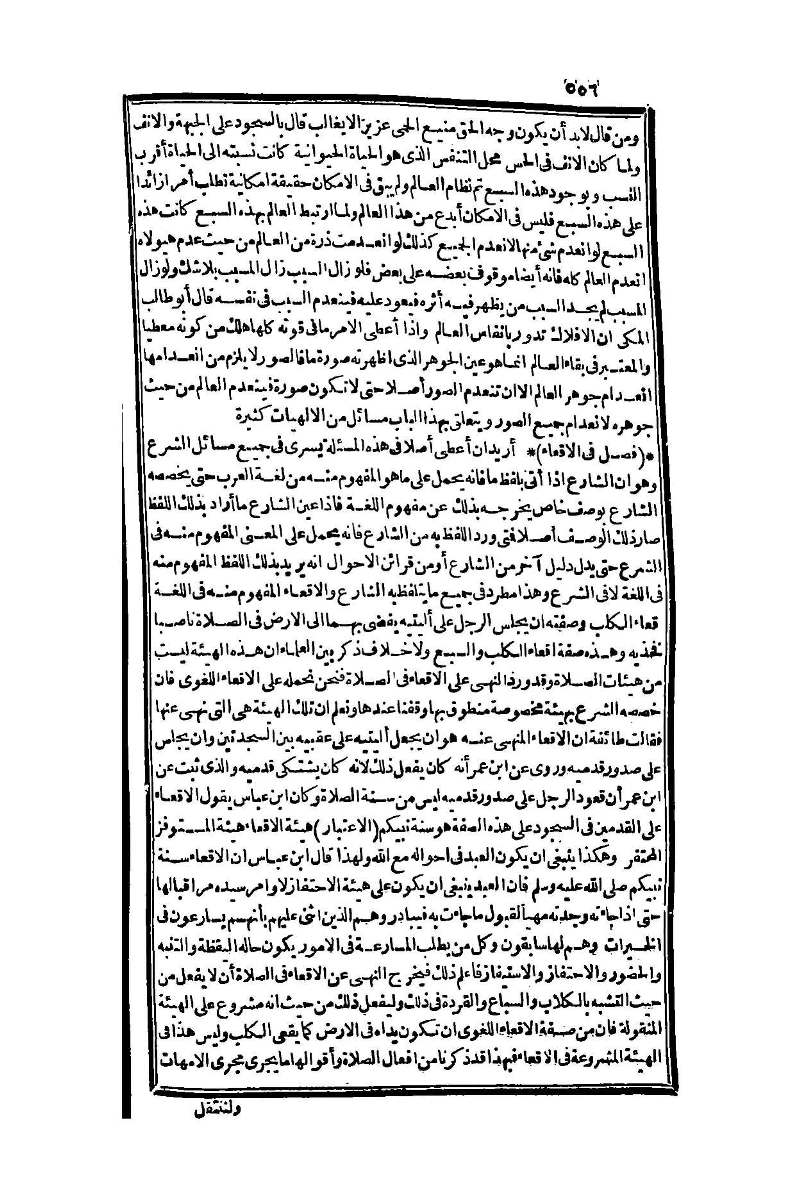 ٥٥٦
ومن قال لابد أن يكون وجه الحق منيع الحمى عزيز الايغالب قال بالسجود على الجبهة والانف
ولما كان الانف فى الحس محل التنفس الذى هو الحياة الحيوانية كانت نسبته الى الحياة أقرب
النسب وبوجود هذه السبع تم نظام العالم ولم يبق فى الامكان حقيقة امكانية تطلب أمرا زائدا
على هذه السبع فليس فى الامكان أبدع من هذا العالم ولما ارتبط العالم بهذه السبع كانت هذه
السبع لو انعدم شئ منها لانعدم الجميع كذلك لو انعدمت ذرة من العالم من حيث عدم هيولاه
انعدم العالم كله فانه أيضا موقوف بعضه على بعض فلو زال السبب زال المسبب بلاشك ولو زال
المسبب لم يجد السبب من يظهر فيه أثره فيعود عليه فينعدم السبب فى نفسه قال أبو طالب
المكى ان الافلاك تدور بانفاس العالم واذا أعطى الامر ما فى قوته كلها هلك من كونه معطيا
والمعتبر فى بقاء العالم انما هو عين الجوهر الذى اظهرته صورة ما فالصور لا يلزم من انعدامها
انعدام جوهر العالم الا ان تنعدم الصور أصلا حتى لا تكون صورة فينعدم العالم من حيث
جوهره لانعدام جميع الصور ويتعلق بهذا الباب مسائل من الالهيات كثيرة
*(فصل فى الاقعاء)* أريد ان أعطى أصلا فى هذه المسئلة يسرى فى جميع مسائل الشرع
وهو ان الشارع اذا أتى بلفظ ما فانه يحمل على ما هو المفهوم منه من لغة العرب حتى يخصصه
الشارع بوصف خاص يخرجه بذلك عن مفهوم اللغة فاذا عين الشارع ما أراد بذلك اللفظ
صار ذلك الوصف أصلا فتى ورد اللفظ به من الشارع فانه يحمل على المعنى المفهوم منه فى
الشرع حتى يدل دليل آخر من الشارع أو من قرائن الاحوال انه يريد بذلك اللفظ المفهوم منه
فى اللغة لا فى الشرع وهذا مطرد فى جميع ما يتلفظ به الشارع والاقعاء المفهوم منه فى اللغة
قعاء الكلب وصفته ان يجلس الرجل على أليتيه يفضى بهما الى الارض فى الصلاة ناصبا
فخذيه وهذه صفة اقعاء الكلب والسبع ولا خلاف ذكر بين العلماء ان هذه الهيئة ليست
من هيئات الصلاة وقد ورد النهى على الاقعاء فى الصلاة فنحن نحمله على الاقعاء اللغوى فان
خصصه الشرع بهيئة مخصوصة منطوق بها وقفنا عندها ونعلم ان تلك الهيئة هى التى نهى عنها
فقالت طائفة ان الاقعاء المنهى عنه هو ان يجعل أليتيه على عقبيه بين السجدتين وان يجلس
على صدور قدميه وروى عن ابن عمر أنه كان يفعل ذلك لانه كان يشتكى قدميه والذى ثبت عن
ابن عمر أن قعود الرجل على صدور قدميه ليس من سنة الصلاة وكان ابن عباس يقول الاقعاء
على القدمين فى السجود على هذه الصفة هو سنة نبيكم (الاعتبار) هيئة الاقعاء هيئة المستوفز
المحتفز وهكذا ينبغى ان يكون العبد فى احواله مع الله ولهذا قال ابن عباس ان الاقعاء سنة
نبيكم صلى الله عليه وسلم فان العبد ينبغى ان يكون على هيئة الاحتفاز لاوامر سيده مراقبا لها
حتى اذا جاءته وجدته مهيأ لقبول ما جاءت به فيبادر وهم الذين اثنى عليهم بأنهم يسارعون فى
الخيرات وهم لها سابقون وكل من يطلب المسارعة فى الامور يكون حاله اليقظة والتنبه
والحضور والاحتفاز والاستيفاز فاعلم ذلك فيخرج النهى عن الاقعاء فى الصلاة أن لا يفعل من
حيث التشبه بالكلاب والسباع والقردة فى ذلك وليفعل ذلك من حيث انه مشروع على الهيئة
المنقولة فان من صفة الاقعاء اللغوى ان تكون يداه فى الارض كما يقعى الكلب وليس هذا فى
الهيئة المشروعة فى الاقعاء فبهذا قد ذكرنا من افعال الصلاة وأقوالها ما يجرى مجرى الامهات
ولننتقل